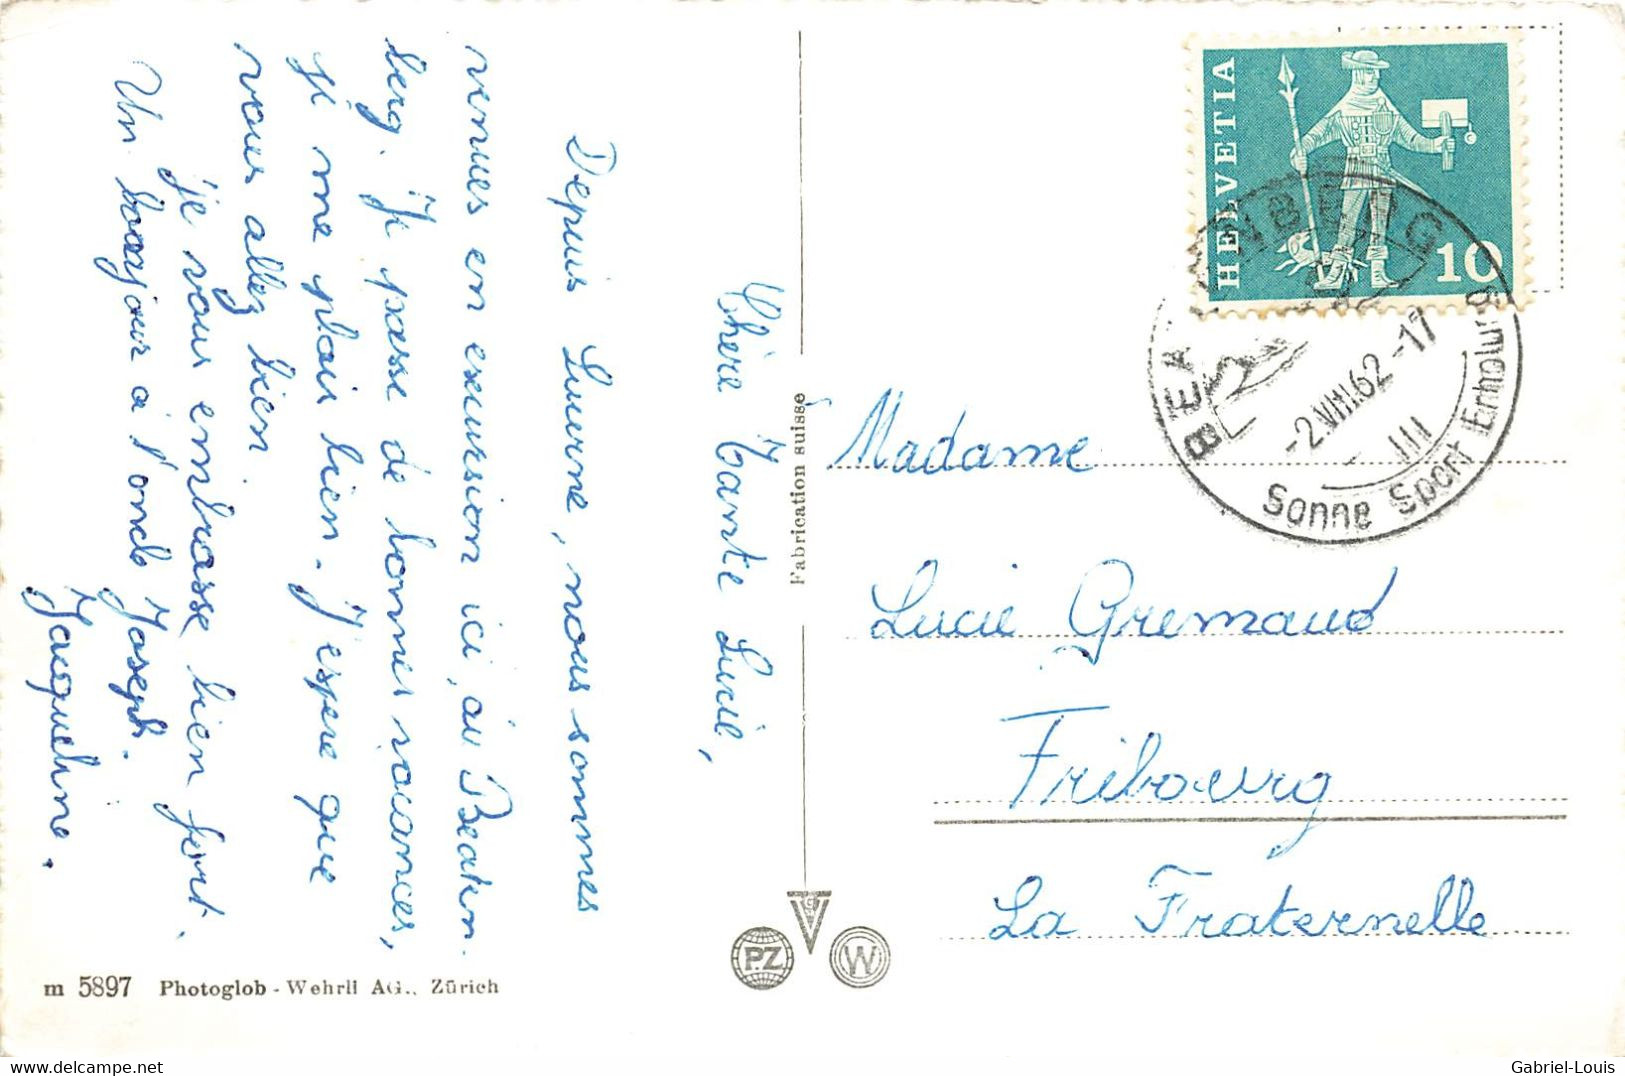 Chère Tante Lucie,
Depuis Lucerne, nous sommes
venues en excursion ici, au Beaten-
berg. Je passe de bonnes vacances,
je me plais bien. J'espère que
vous allez bien.
Je vous embrasse bien fort.
Un bonjour à l'oncle Joseph.
Jacqueline.
Fabrication suisse
HELVETIA
10
BEATENBERG
-2.VIII.62-17
III
Sonne Sport Erholung
Madame
Lucie Gremaud
Fribourg
La Fraternelle
P.Z
W
m 5897 Photoglob - Wehrli AG., Zürich
delcampe.net
Gabriel-Louis